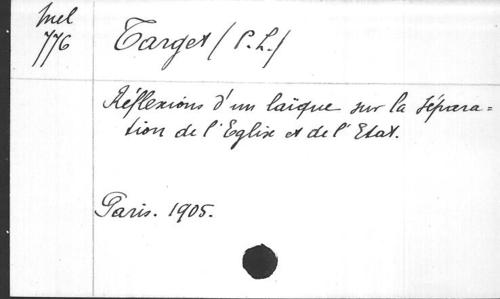 Mel
776
Target (P.L.)
Réflexions d'un laïque sur la sépara=
tion de l'Eglise et de l'Etat.
Paris. 1905.